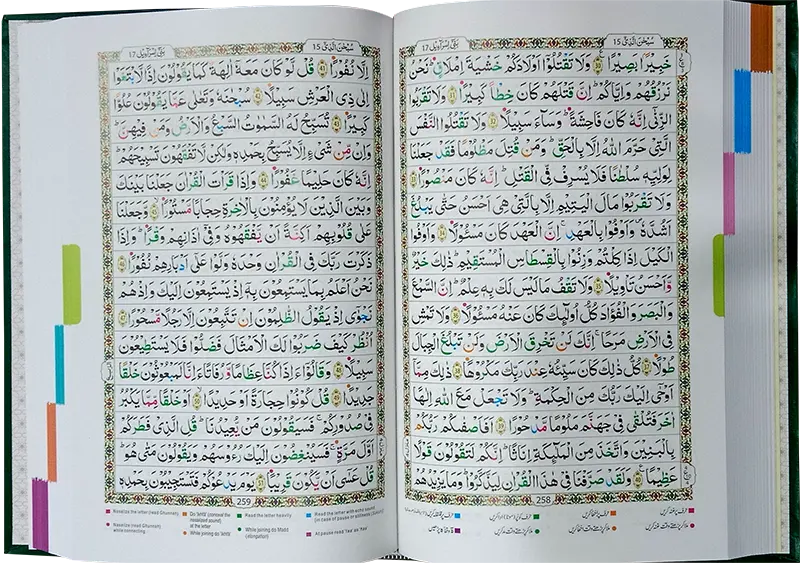 سُبْحٰنَ الَّذِیْۤ 15
بَنِیْۤ اِسْرَآءِیْل 17
خَبِیْرًۢا بَصِیْرًا ﴿۳۰﴾ وَلَا تَقْتُلُوْۤا اَوْلَادَكُمْ خَشْیَةَ اِمْلَاقٍ ؕ نَحْنُ
نَرْزُقُهُمْ وَاِیَّاكُمْ ؕ اِنَّ قَتْلَهُمْ كَانَ خِطْاً كَبِیْرًا ﴿۳۱﴾ وَلَا تَقْرَبُوا
الزِّنٰۤی اِنَّهٗ كَانَ فَاحِشَةً ؕ وَسَآءَ سَبِیْلًا ﴿۳۲﴾ وَلَا تَقْتُلُوا النَّفْسَ
الَّتِیْ حَرَّمَ اللّٰهُ اِلَّا بِالْحَقِّ ؕ وَمَنْ قُتِلَ مَظْلُوْمًا فَقَدْ جَعَلْنَا
لِوَلِیِّهٖ سُلْطٰنًا فَلَا یُسْرِفْ فِّی الْقَتْلِ ؕ اِنَّهٗ كَانَ مَنْصُوْرًا ﴿۳۳﴾
وَلَا تَقْرَبُوْا مَالَ الْیَتِیْمِ اِلَّا بِالَّتِیْ هِیَ اَحْسَنُ حَتّٰی یَبْلُغَ
اَشُدَّهٗ ۪ وَاَوْفُوْا بِالْعَهْدِ ۚ اِنَّ الْعَهْدَ كَانَ مَسْـُٔوْلًا ﴿۳۴﴾ وَاَوْفُوا
الْكَیْلَ اِذَا كِلْتُمْ وَزِنُوْا بِالْقِسْطَاسِ الْمُسْتَقِیْمِ ؕ ذٰلِكَ خَیْرٌ
وَّاَحْسَنُ تَاْوِیْلًا ﴿۳۵﴾ وَلَا تَقْفُ مَا لَیْسَ لَكَ بِهٖ عِلْمٌ ؕ اِنَّ السَّمْعَ
وَالْبَصَرَ وَالْفُؤَادَ كُلُّ اُولٰٓئِكَ كَانَ عَنْهُ مَسْـُٔوْلًا ﴿۳۶﴾ وَلَا تَمْشِ
فِی الْاَرْضِ مَرَحًا ۚ اِنَّكَ لَنْ تَخْرِقَ الْاَرْضَ وَلَنْ تَبْلُغَ الْجِبَالَ
طُوْلًا ﴿۳۷﴾ كُلُّ ذٰلِكَ كَانَ سَیِّئُهٗ عِنْدَ رَبِّكَ مَكْرُوْهًا ﴿۳۸﴾ ذٰلِكَ مِمَّاۤ
اَوْحٰۤی اِلَیْكَ رَبُّكَ مِنَ الْحِكْمَةِ ؕ وَلَا تَجْعَلْ مَعَ اللّٰهِ اِلٰهًا
اٰخَرَ فَتُلْقٰی فِیْ جَهَنَّمَ مَلُوْمًا مَّدْحُوْرًا ﴿۳۹﴾ اَفَاَصْفٰىكُمْ رَبُّكُمْ
بِالْبَنِیْنَ وَاتَّخَذَ مِنَ الْمَلٰٓئِكَةِ اِنَاثًا ؕ اِنَّكُمْ لَتَقُوْلُوْنَ قَوْلًا
عَظِیْمًا ﴿۴۰﴾ وَلَقَدْ صَرَّفْنَا فِیْ هٰذَا الْقُرْاٰنِ لِیَذَّكَّرُوْا ؕ وَمَا یَزِیْدُهُمْ
258
سُبْحٰنَ الَّذِیْۤ 15
بَنِیْۤ اِسْرَآءِیْل 17
اِلَّا نُفُوْرًا ﴿۴۱﴾ قُلْ لَّوْ كَانَ مَعَهٗۤ اٰلِهَةٌ كَمَا یَقُوْلُوْنَ اِذًا لَّابْتَغَوْا
اِلٰی ذِی الْعَرْشِ سَبِیْلًا ﴿۴۲﴾ سُبْحٰنَهٗ وَتَعٰلٰی عَمَّا یَقُوْلُوْنَ عُلُوًّا
كَبِیْرًا ﴿۴۳﴾ تُسَبِّحُ لَهُ السَّمٰوٰتُ السَّبْعُ وَالْاَرْضُ وَمَنْ فِیْهِنَّ ؕ
وَاِنْ مِّنْ شَیْءٍ اِلَّا یُسَبِّحُ بِحَمْدِهٖ وَلٰكِنْ لَّا تَفْقَهُوْنَ تَسْبِیْحَهُمْ ؕ
اِنَّهٗ كَانَ حَلِیْمًا غَفُوْرًا ﴿۴۴﴾ وَاِذَا قَرَاْتَ الْقُرْاٰنَ جَعَلْنَا بَیْنَكَ
وَبَیْنَ الَّذِیْنَ لَا یُؤْمِنُوْنَ بِالْاٰخِرَةِ حِجَابًا مَّسْتُوْرًا ﴿۴۵﴾ وَّجَعَلْنَا
عَلٰی قُلُوْبِهِمْ اَكِنَّةً اَنْ یَّفْقَهُوْهُ وَفِیْۤ اٰذَانِهِمْ وَقْرًا ؕ وَاِذَا
ذَكَرْتَ رَبَّكَ فِی الْقُرْاٰنِ وَحْدَهٗ وَلَّوْا عَلٰۤی اَدْبَارِهِمْ نُفُوْرًا ﴿۴۶﴾
نَحْنُ اَعْلَمُ بِمَا یَسْتَمِعُوْنَ بِهٖۤ اِذْ یَسْتَمِعُوْنَ اِلَیْكَ وَاِذْ هُمْ
نَجْوٰۤی اِذْ یَقُوْلُ الظّٰلِمُوْنَ اِنْ تَتَّبِعُوْنَ اِلَّا رَجُلًا مَّسْحُوْرًا ﴿۴۷﴾
اُنْظُرْ كَیْفَ ضَرَبُوْا لَكَ الْاَمْثَالَ فَضَلُّوْا فَلَا یَسْتَطِیْعُوْنَ
سَبِیْلًا ﴿۴۸﴾ وَقَالُوْۤا ءَاِذَا كُنَّا عِظَامًا وَّرُفَاتًا ءَاِنَّا لَمَبْعُوْثُوْنَ خَلْقًا
جَدِیْدًا ﴿۴۹﴾ قُلْ كُوْنُوْا حِجَارَةً اَوْ حَدِیْدًا ﴿۵۰﴾ اَوْ خَلْقًا مِّمَّا یَكْبُرُ
فِیْ صُدُوْرِكُمْ ۚ فَسَیَقُوْلُوْنَ مَنْ یُّعِیْدُنَا ؕ قُلِ الَّذِیْ فَطَرَكُمْ
اَوَّلَ مَرَّةٍ ۚ فَسَیُنْغِضُوْنَ اِلَیْكَ رُءُوْسَهُمْ وَیَقُوْلُوْنَ مَتٰی هُوَ ؕ
قُلْ عَسٰۤی اَنْ یَّكُوْنَ قَرِیْبًا ﴿۵۱﴾ یَوْمَ یَدْعُوْكُمْ فَتَسْتَجِیْبُوْنَ بِحَمْدِهٖ
259
Nasalize the letter (read Ghunnah)
Nasalize (read Ghunnah) while connecting
Do 'Ikhfa' (conceal the nasalized sound) of the letter
While joining do 'Ikhfa'
Read the letter heavily
While joining do Madd (elongation)
Read the letter with echo sound